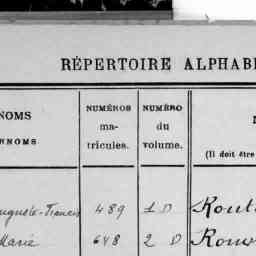 RÉPERTOIRE ALPHABÉ
NOMS
RNOMS
NUMÉROS
ma-
tricules.
NUMÉRO
du
volume.
(Il doit être
uguste-Francis 489 1 D
Marie 648 2 D